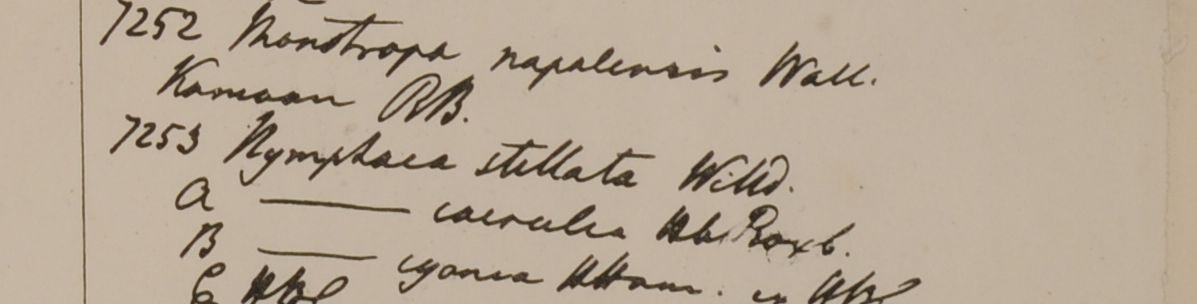 7252 Monotropa napalensis Wall.
Kamaon RB.
7253 Nymphaea stellata Willd.
a —— caerulea Hb. Roxb.
B —— cyanea HHam. in HBC
C HBC